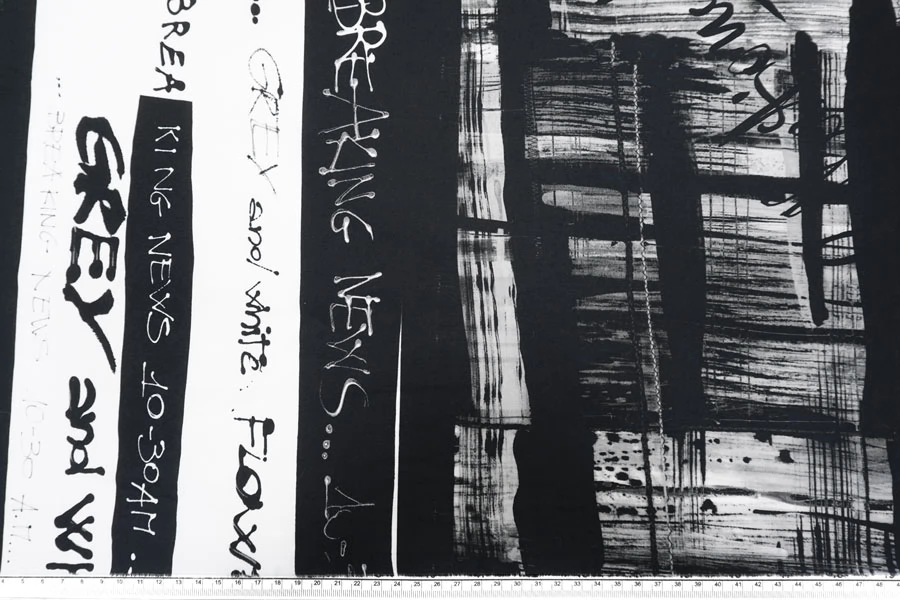 ... BREAKING NEWS 10-30 AM...
GREY and Wh
BREA
KING NEWS 10-30AM.
... GREY and white. Flow
BREAKING NEWS... 10
4 5 6 7 8 9 10 11 12 13 14 15 16 17 18 19 20 21 22 23 24 25 26 27 28 29 30 31 32 33 34 35 36 37 38 39 40 41 42 43 44 45 46 47 48